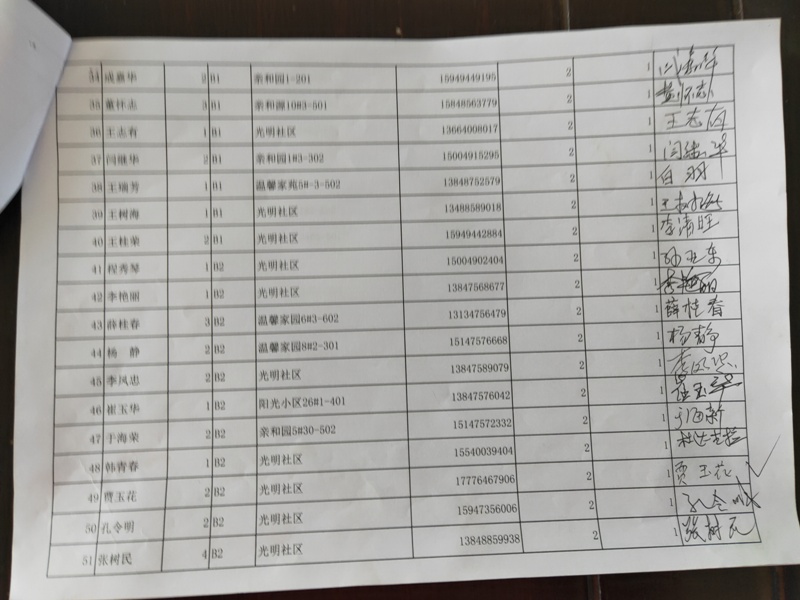 34 成嘉华 2 B1 亲和园1-201 15949449195 2 1
35 董怀志 3 B1 亲和源10#3-501 15848563779 2 1 董怀志
36 王志有 1 B1 光明社区 13664008017 2 1 王志有
37 闫继华 2 B1 亲和园1#3-302 15004915295 2 1 闫继华
38 王瑞芳 1 B1 温馨家苑5#-3-502 13848752579 2 1 白羽
39 王树海 1 B1 光明社区 13488589018 2 1 王树海
40 王桂荣 2 B1 光明社区 15949442884 2 1 李清旺
41 程秀琴 1 B2 光明社区 15004902404 2 1 孙亚东
42 李艳丽 1 B2 光明社区 13847568677 2 1 李艳丽
43 薛桂春 3 B2 温馨家园6#3-602 13134756479 2 1 薛桂春
44 杨 静 2 B2 温馨家园8#2-301 15147576668 2 1 杨静
45 李凤忠 2 B2 光明社区 13847589079 2 1
46 崔玉华 1 B2 阳光小区26#1-401 13847576042 2 1 崔玉华
47 于海荣 2 B2 亲和园5#30-502 15147572332 2 1
48 韩青春 1 B2 光明社区 15540039404 2 1
49 贾玉花 2 B2 光明社区 17776467906 2 1 贾玉花
50 孔令明 2 B2 光明社区 15947356006 2 1 孔令明
51 张树民 4 B2 光明社区 13848859938 2 1 张树民